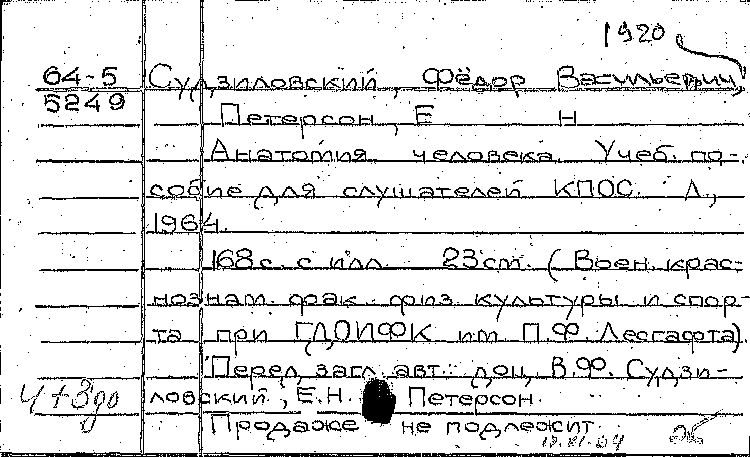 1920
64-5 Судзиловский, Фёдор Васильевич,
5249
Петерсон, Е Н
Анатомия человека. Учеб. по-
собие для слушателей КПОС. Л.,
1964.
168 с. с илл. 23 cm. (Воен. крас-
нознам. фак. физ. культуры и спор-
та при ГДОИФК им П.Ф. Лесгафта).
Перед загл. авт.: доц. В.Ф. Судзи-
ловский, Е.Н. Петерсон.
Продаже не подлежит.